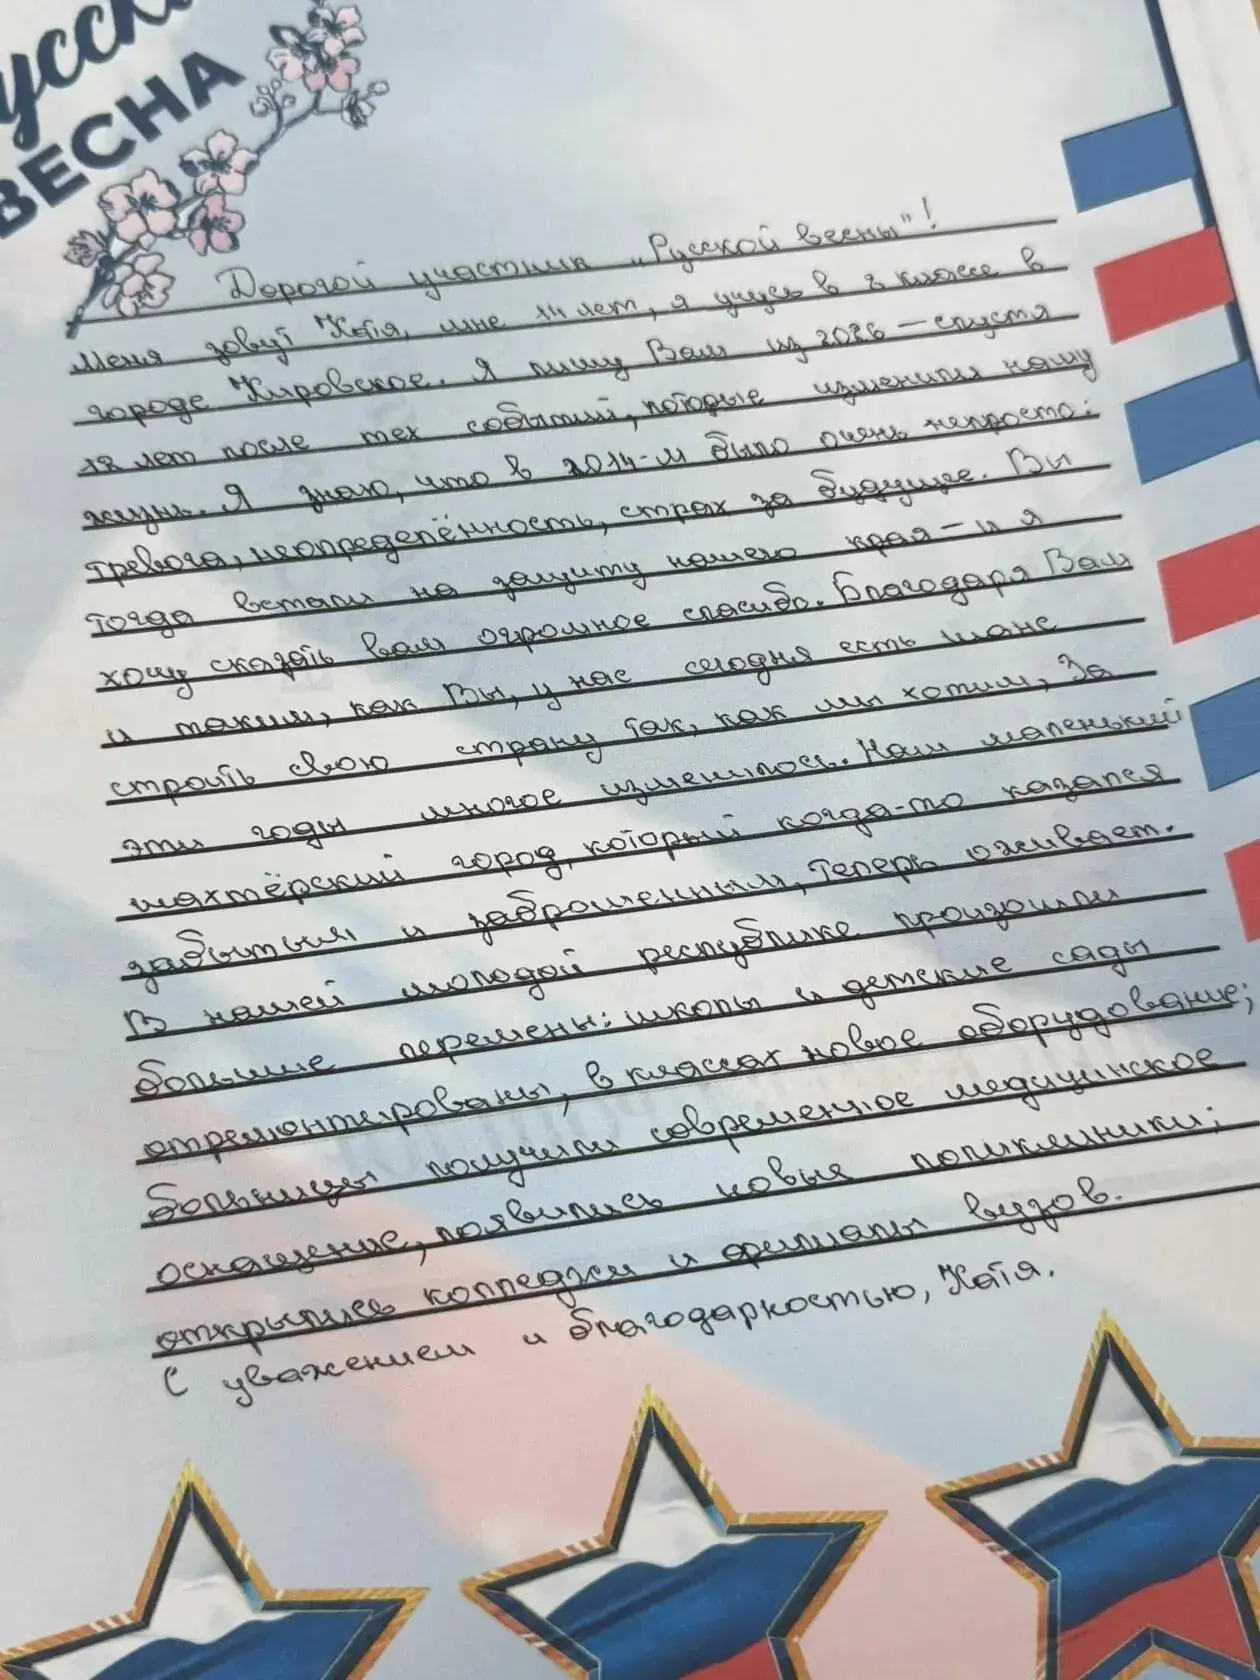 Русская
ВЕСНА
Дорогой участник „Русской весны"!
Меня зовут Катя, мне 14 лет, я учусь в 8 классе в
городе Кировское. Я пишу Вам из 2026 — спустя
12 лет после тех событий, которые изменили нашу
жизнь. Я знаю, что в 2014-м было очень непросто:
тревога, неопределённость, страх за будущее. Вы
тогда встали на защиту нашего края — и я
хочу сказать вам огромное спасибо. Благодаря Вам
и таким, как Вы, у нас сегодня есть шанс
строить свою страну так, как мы хотим, За
эти годы многое изменилось. Наш маленький
шахтёрский город, который когда-то казался
забытым и заброшенным, теперь оживает.
В нашей молодой республике произошли
большие перемены: школы и детские сады
отремонтированы, в классах новое оборудование;
больницы получили современное медицинское
оснащение, появились новые поликлиники;
открылись колледжи и филиалы вузов.
С уважением и благодарностью, Катя.